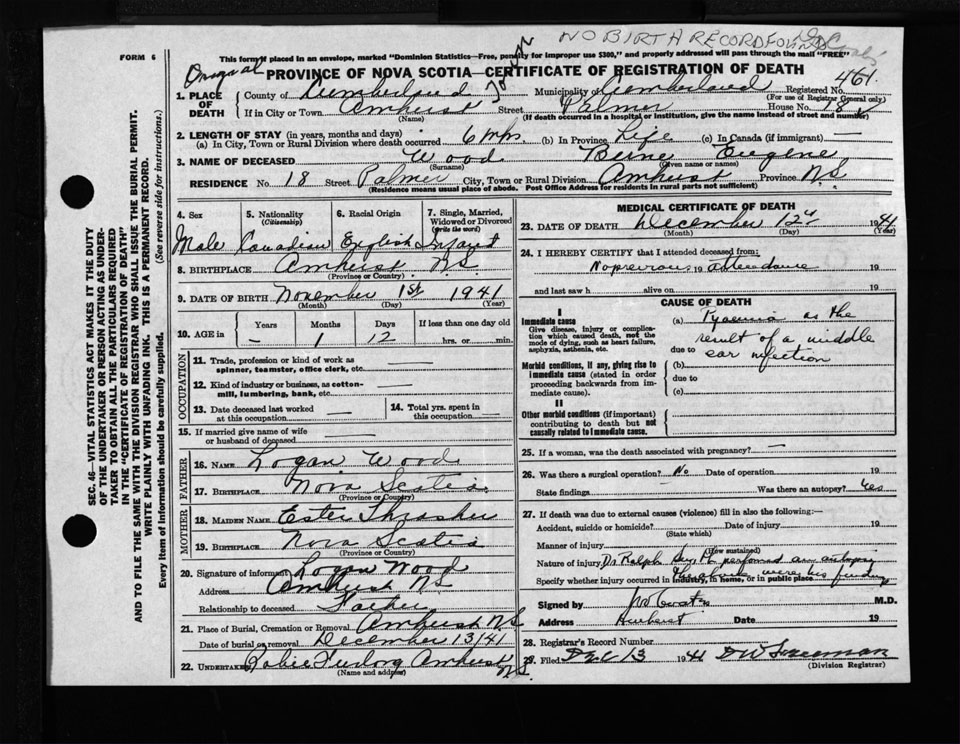 NO BIRTH RECORD FOUND
This form if placed in an envelope, marked "Dominion Statistics—Free, penalty for improper use $300," and properly addressed will pass through the mail "FREE"
FORM 6
Original
PROVINCE OF NOVA SCOTIA—CERTIFICATE OF REGISTRATION OF DEATH
461
1. PLACE OF DEATH
County of Cumberland Town Municipality of Cumberland Registered No.
(For use of Registrar General only)
If in City or Town Amherst Street Palmer House No. 18
(Name) (If death occurred in a hospital or institution, give the name instead of street and number)
2. LENGTH OF STAY (in years, months and days)
(a) In City, Town or Rural Division where death occurred 6 mos. (b) In Province Life (c) In Canada (if immigrant) —
3. NAME OF DECEASED Wood Eugene
(Surname) (Given name or names)
RESIDENCE No. 18 Street Palmer City, Town or Rural Division Amherst Province N.S.
(Residence means usual place of abode. Post Office Address for residents in rural parts not sufficient)
SEC. 46—VITAL STATISTICS ACT MAKES IT THE DUTY
OF THE UNDERTAKER OR PERSON ACTING AS UNDER-
TAKER TO OBTAIN ALL THE PARTICULARS REQUIRED
IN THE "CERTIFICATE OF REGISTRATION OF DEATH"
AND TO FILE THE SAME WITH THE DIVISION REGISTRAR WHO SHALL ISSUE THE BURIAL PERMIT.
WRITE PLAINLY WITH UNFADING INK. THIS IS A PERMANENT RECORD.
Every item of information should be carefully supplied. (See reverse side for instructions.)
4. Sex
5. Nationality (Citizenship)
6. Racial Origin
7. Single, Married, Widowed or Divorced (write the word)
Male Canadian English Infant
8. BIRTHPLACE Amherst N.S.
(Province or Country)
9. DATE OF BIRTH November 1st 1941
(Month) (Day) (Year)
10. AGE in Years Months Days If less than one day old
— 1 12 hrs. or min.
OCCUPATION
11. Trade, profession or kind of work as
spinner, teamster, office clerk, etc. —
12. Kind of industry or business, as cotton-
mill, lumbering, bank, etc. —
13. Date deceased last worked at this occupation —
14. Total yrs. spent in this occupation —
15. If married give name of wife
or husband of deceased —
FATHER
16. NAME Logan Wood
17. BIRTHPLACE Nova Scotia
(Province or Country)
MOTHER
18. MAIDEN NAME Ester Thrasher
19. BIRTHPLACE Nova Scotia
(Province or Country)
20. Signature of informant Logan Wood
Address Amherst N.S.
Relationship to deceased Father
21. Place of Burial, Cremation or Removal Amherst N.S.
Date of burial or removal December 13/41
22. UNDERTAKER Furlong Amherst N.S.
(Name and address)
MEDICAL CERTIFICATE OF DEATH
23. DATE OF DEATH December 12 1941
(Month) (Day) (Year)
24. I HEREBY CERTIFY that I attended deceased from:
No previous 19 attendance 19
and last saw h alive on 19
CAUSE OF DEATH
I
Immediate cause
Give disease, injury or complica-
tion which caused death, not the
mode of dying, such as heart failure,
asphyxia, asthenia, etc.
(a) Pyaemia as the
result of a middle
due to ear infection
Morbid conditions, if any, giving rise to
immediate cause (stated in order
proceeding backwards from im-
mediate cause).
(b)
due to
(c)
II
Other morbid conditions (if important)
contributing to death but not
causally related to immediate cause.
25. If a woman, was the death associated with pregnancy? —
26. Was there a surgical operation? No Date of operation 19
State findings Was there an autopsy? Yes
27. If death was due to external causes (violence) fill in also the following:—
Accident, suicide or homicide? Date of injury 19
(State which)
Manner of injury
(How sustained)
Nature of injury Dr Ralph performed an autopsy
Specify whether injury occurred in industry, in home, or in public place
these were his findings
Signed by M.D.
Address Amherst Date 19
28. Registrar's Record Number
29. Filed DEC 13 1941
(Division Registrar)